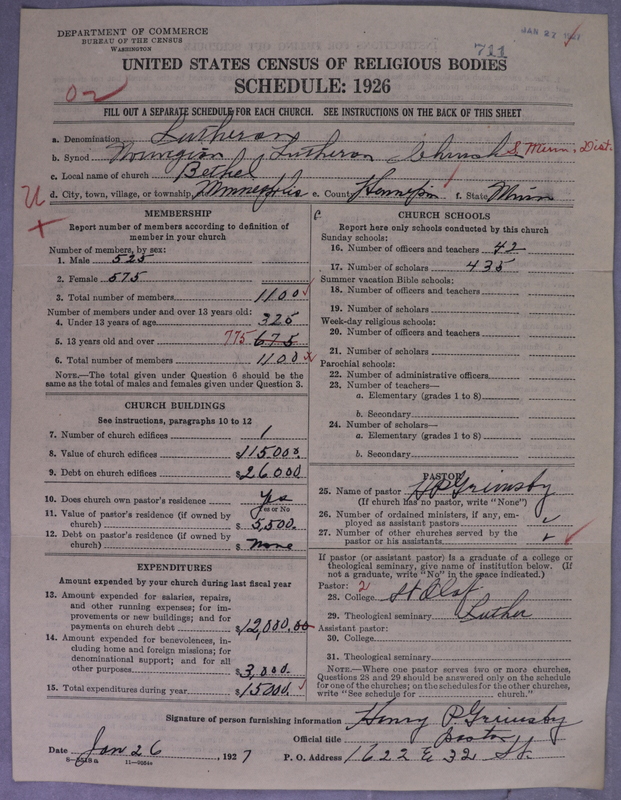 DEPARTMENT OF COMMERCE
BUREAU OF THE CENSUS
WASHINGTON
711
JAN 27 1927
UNITED STATES CENSUS OF RELIGIOUS BODIES
SCHEDULE: 1926
FILL OUT A SEPARATE SCHEDULE FOR EACH CHURCH. SEE INSTRUCTIONS ON THE BACK OF THIS SHEET
a. Denomination Lutheran
b. Synod Norwegian Lutheran Church S. Minn. Dist.
c. Local name of church Bethel
d. City, town, village, or township Minneapolis e. County Hennepin f. State Minn
MEMBERSHIP
Report number of members according to definition of
member in your church
Number of members, by sex:
1. Male 525
2. Female 575
3. Total number of members 1100
Number of members under and over 13 years old:
4. Under 13 years of age 325
5. 13 years old and over 775 675
6. Total number of members 1100
NOTE.—The total given under Question 6 should be
same as the total of males and females given under Question 3.
CHURCH BUILDINGS
See instructions, paragraphs 10 to 12
7. Number of church edifices 1
8. Value of church edifices $115000.
9. Debt on church edifices $26000
10. Does church own pastor's residence? Yes
Yes or No
11. Value of pastor's residence (if owned by
church) $5,500.
12. Debt on pastor's residence (if owned by
church) $None
EXPENDITURES
Amount expended by your church during last fiscal year
13. Amount expended for salaries, repairs,
and other running expenses; for im-
provements or new buildings; and for
payments on church debt $12,000.00
14. Amount expended for benevolences, in-
cluding home and foreign missions; for
denominational support; and for all
other purposes $3,000.
15. Total expenditures during year $15000.
CHURCH SCHOOLS
Report here only schools conducted by this church
Sunday schools:
16. Number of officers and teachers 42
17. Number of scholars 435
Summer vacation Bible schools:
18. Number of officers and teachers
19. Number of scholars
Week-day religious schools:
20. Number of officers and teachers
21. Number of scholars
Parochial schools:
22. Number of administrative officers
23. Number of teachers—
a. Elementary (grades 1 to 8)
b. Secondary
24. Number of scholars—
a. Elementary (grades 1 to 8)
b. Secondary
PASTOR
25. Name of pastor HP Grimsby
(If church has no pastor, write "None")
26. Number of ordained ministers, if any, em-
ployed as assistant pastors
27. Number of other churches served by the
pastor or his assistants
If pastor (or assistant pastor) is a graduate of a college or
theological seminary, give name of institution below. (If
not a graduate, write "No" in the space indicated.)
Pastor: 2
28. College St Olaf
29. Theological seminary Luther
Assistant pastor:
30. College
31. Theological seminary
NOTE.—Where one pastor serves two or more churches,
Questions 28 and 29 should be answered only on the schedule
for one of the churches; on the schedules for the other churches,
write "See schedule for church."
Signature of person furnishing information Henry P. Grimsby
Official title Pastor
Date Jan 26, 1927 P. O. Address 1622 E 32 St.